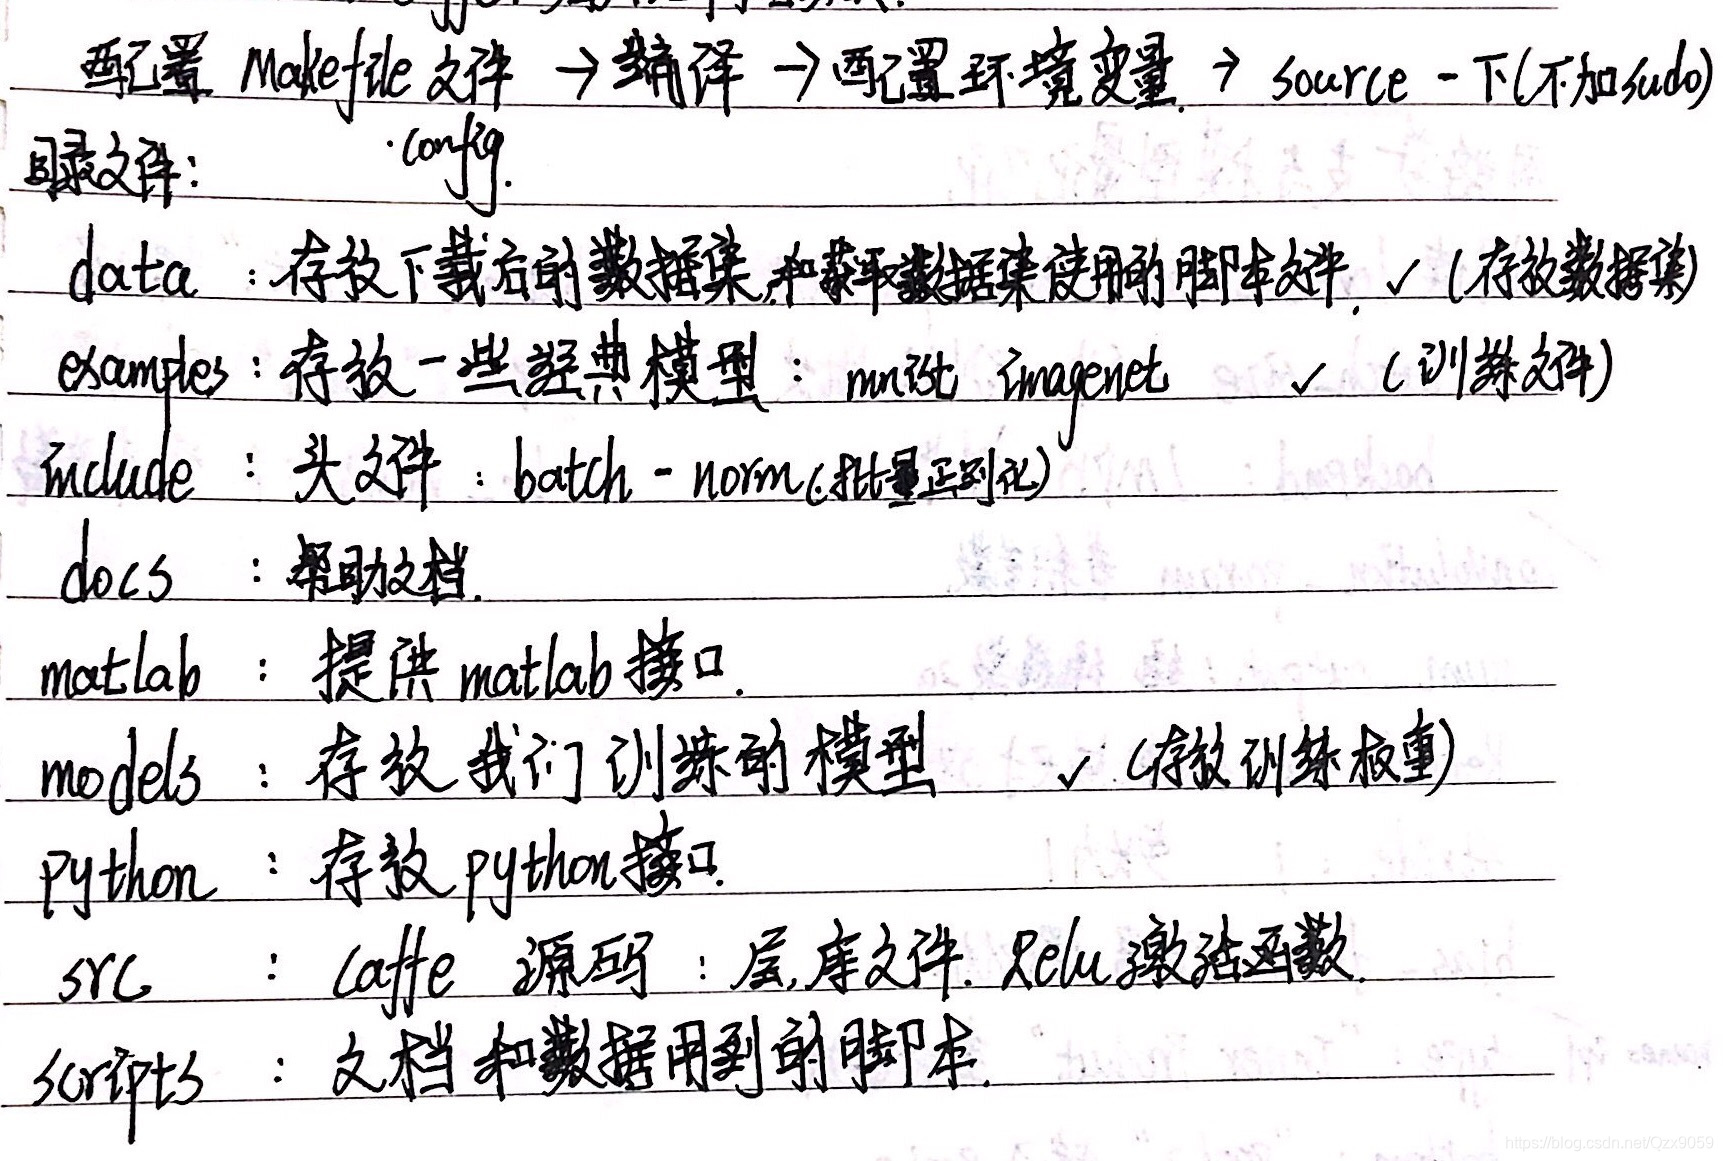 配置 Makefile 文件 → 编译 → 配置环境变量. → source 一下(不加sudo)
.config.
目录文件:
data : 存放下载后的数据集,和获取数据集使用的脚本文件. ✓ (存放数据集)
examples : 存放一些经典模型 : mnist imagenet ✓ (训练文件)
include : 头文件 : batch - norm(批量正则化)
docs : 帮助文档.
matlab : 提供 matlab 接口.
models : 存放我们训练的模型 ✓ (存放训练权重)
python : 存放 python 接口.
src : caffe 源码 : 层,库文件. Relu 激活函数.
scripts : 文档和数据用到的脚本.
https://blog.csdn.net/Qzx9059